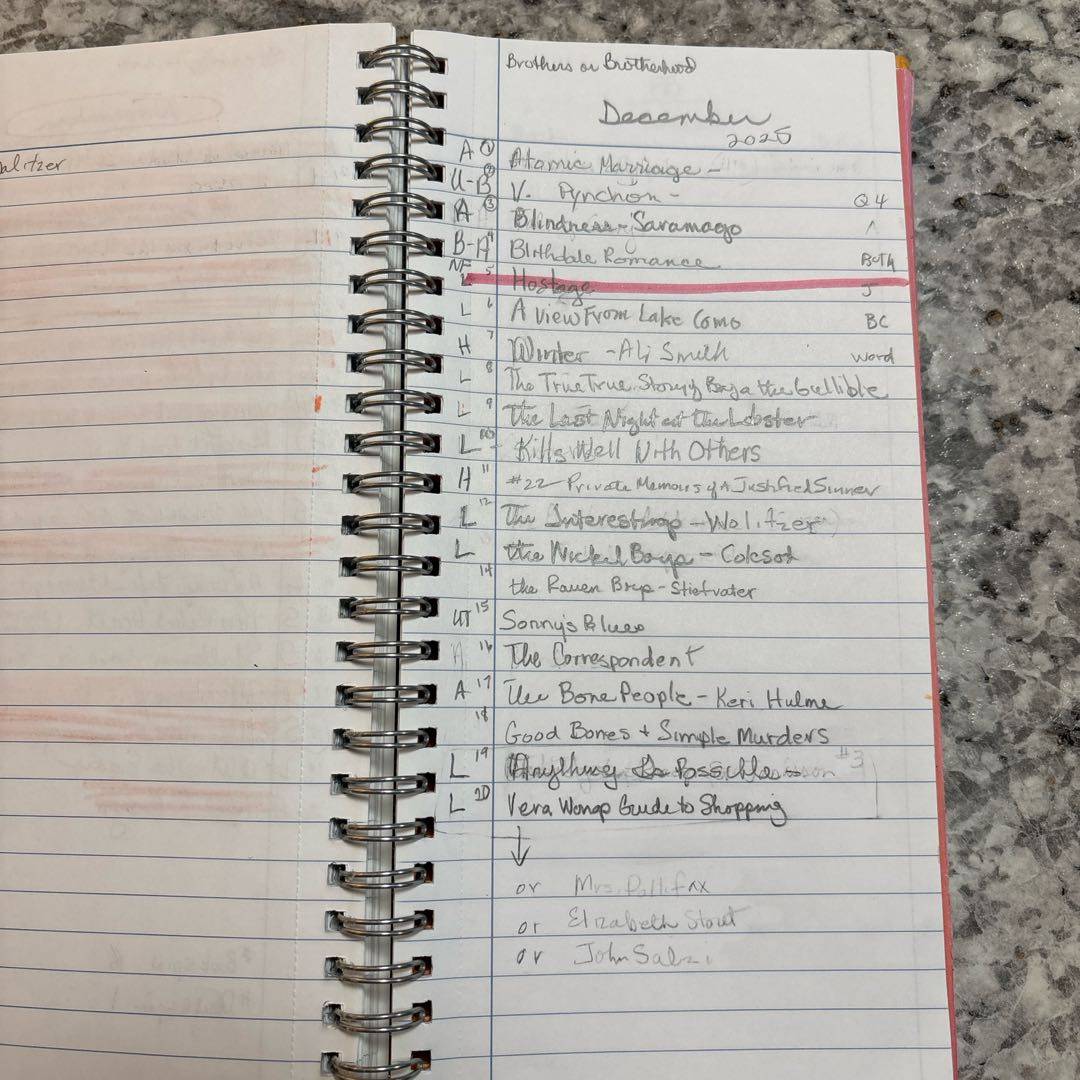 Brothers or Brotherhood
December
2025
alitzer
A 1 Atomic Marriage -
U-B 2 V. Pynchon - Q4
A 3 Blindness - Saramago ^
B-A 4 Birthdale Romance BOTH
NF L 5 Hostage J
L 6 A View From Lake Como BC
H 7 Winter - Ali Smith word
L 8 The True True Story of Raja the Gullible
L 9 The Last Night at the Lobster
L 10 Kills Well With Others
H 11 #22 Private Memoirs of A Justified Sinner
L 12 The Interestings - Wolitzer
L the Nickel Boys - Colson
14 the Raven Boys - Stiefvater
15 Sonny's Blues
A 16 The Correspondent
A 17 The Bone People - Keri Hulme
18 Good Bones + Simple Murders
L 19 Anything Is Possible #3
L 20 Vera Wongs Guide to Shopping
↓
or Mrs. Pollifax
or Elizabeth Stout
or John